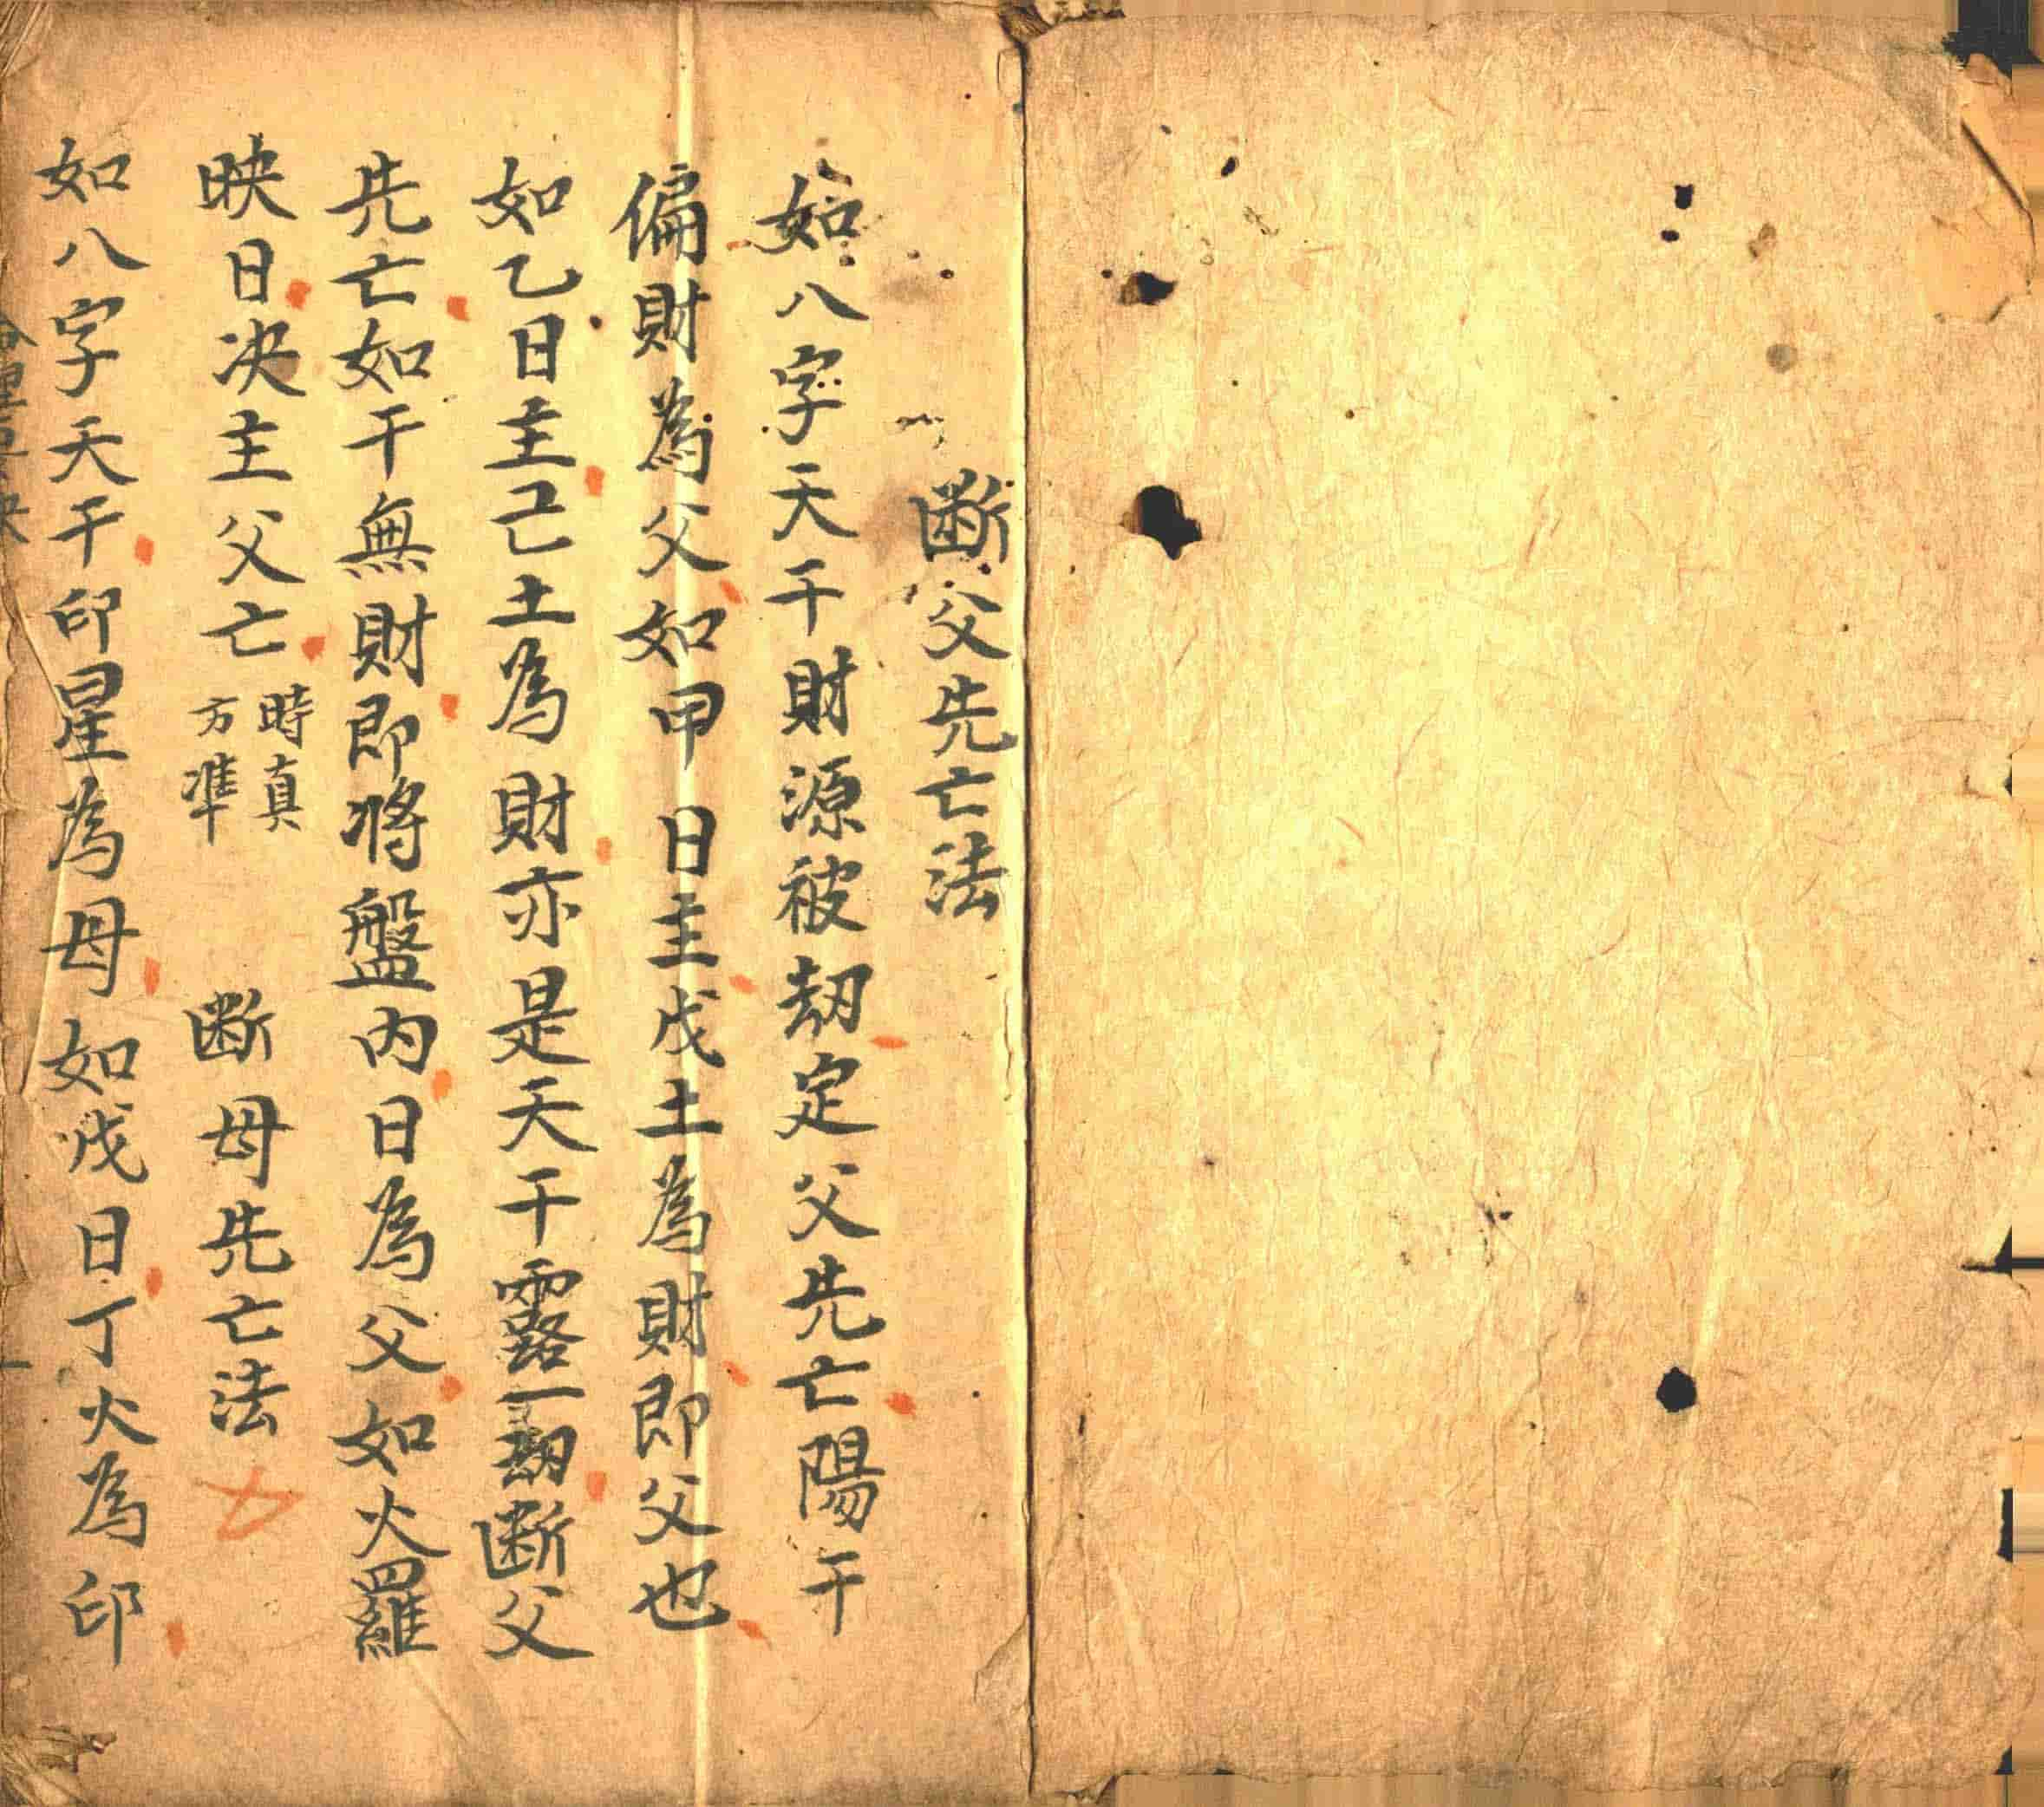 斷父先亡法
如八字天干財源被刼定父先亡陽干
偏財為父如甲日主戊土為財即父也
如乙日主己土為財亦是天干露一刼斷父
先亡如干無財即將盤内日為父如火羅
映日决主父亡時真方準　斷母先亡法
如八字天干印星為母如戊日丁火為印